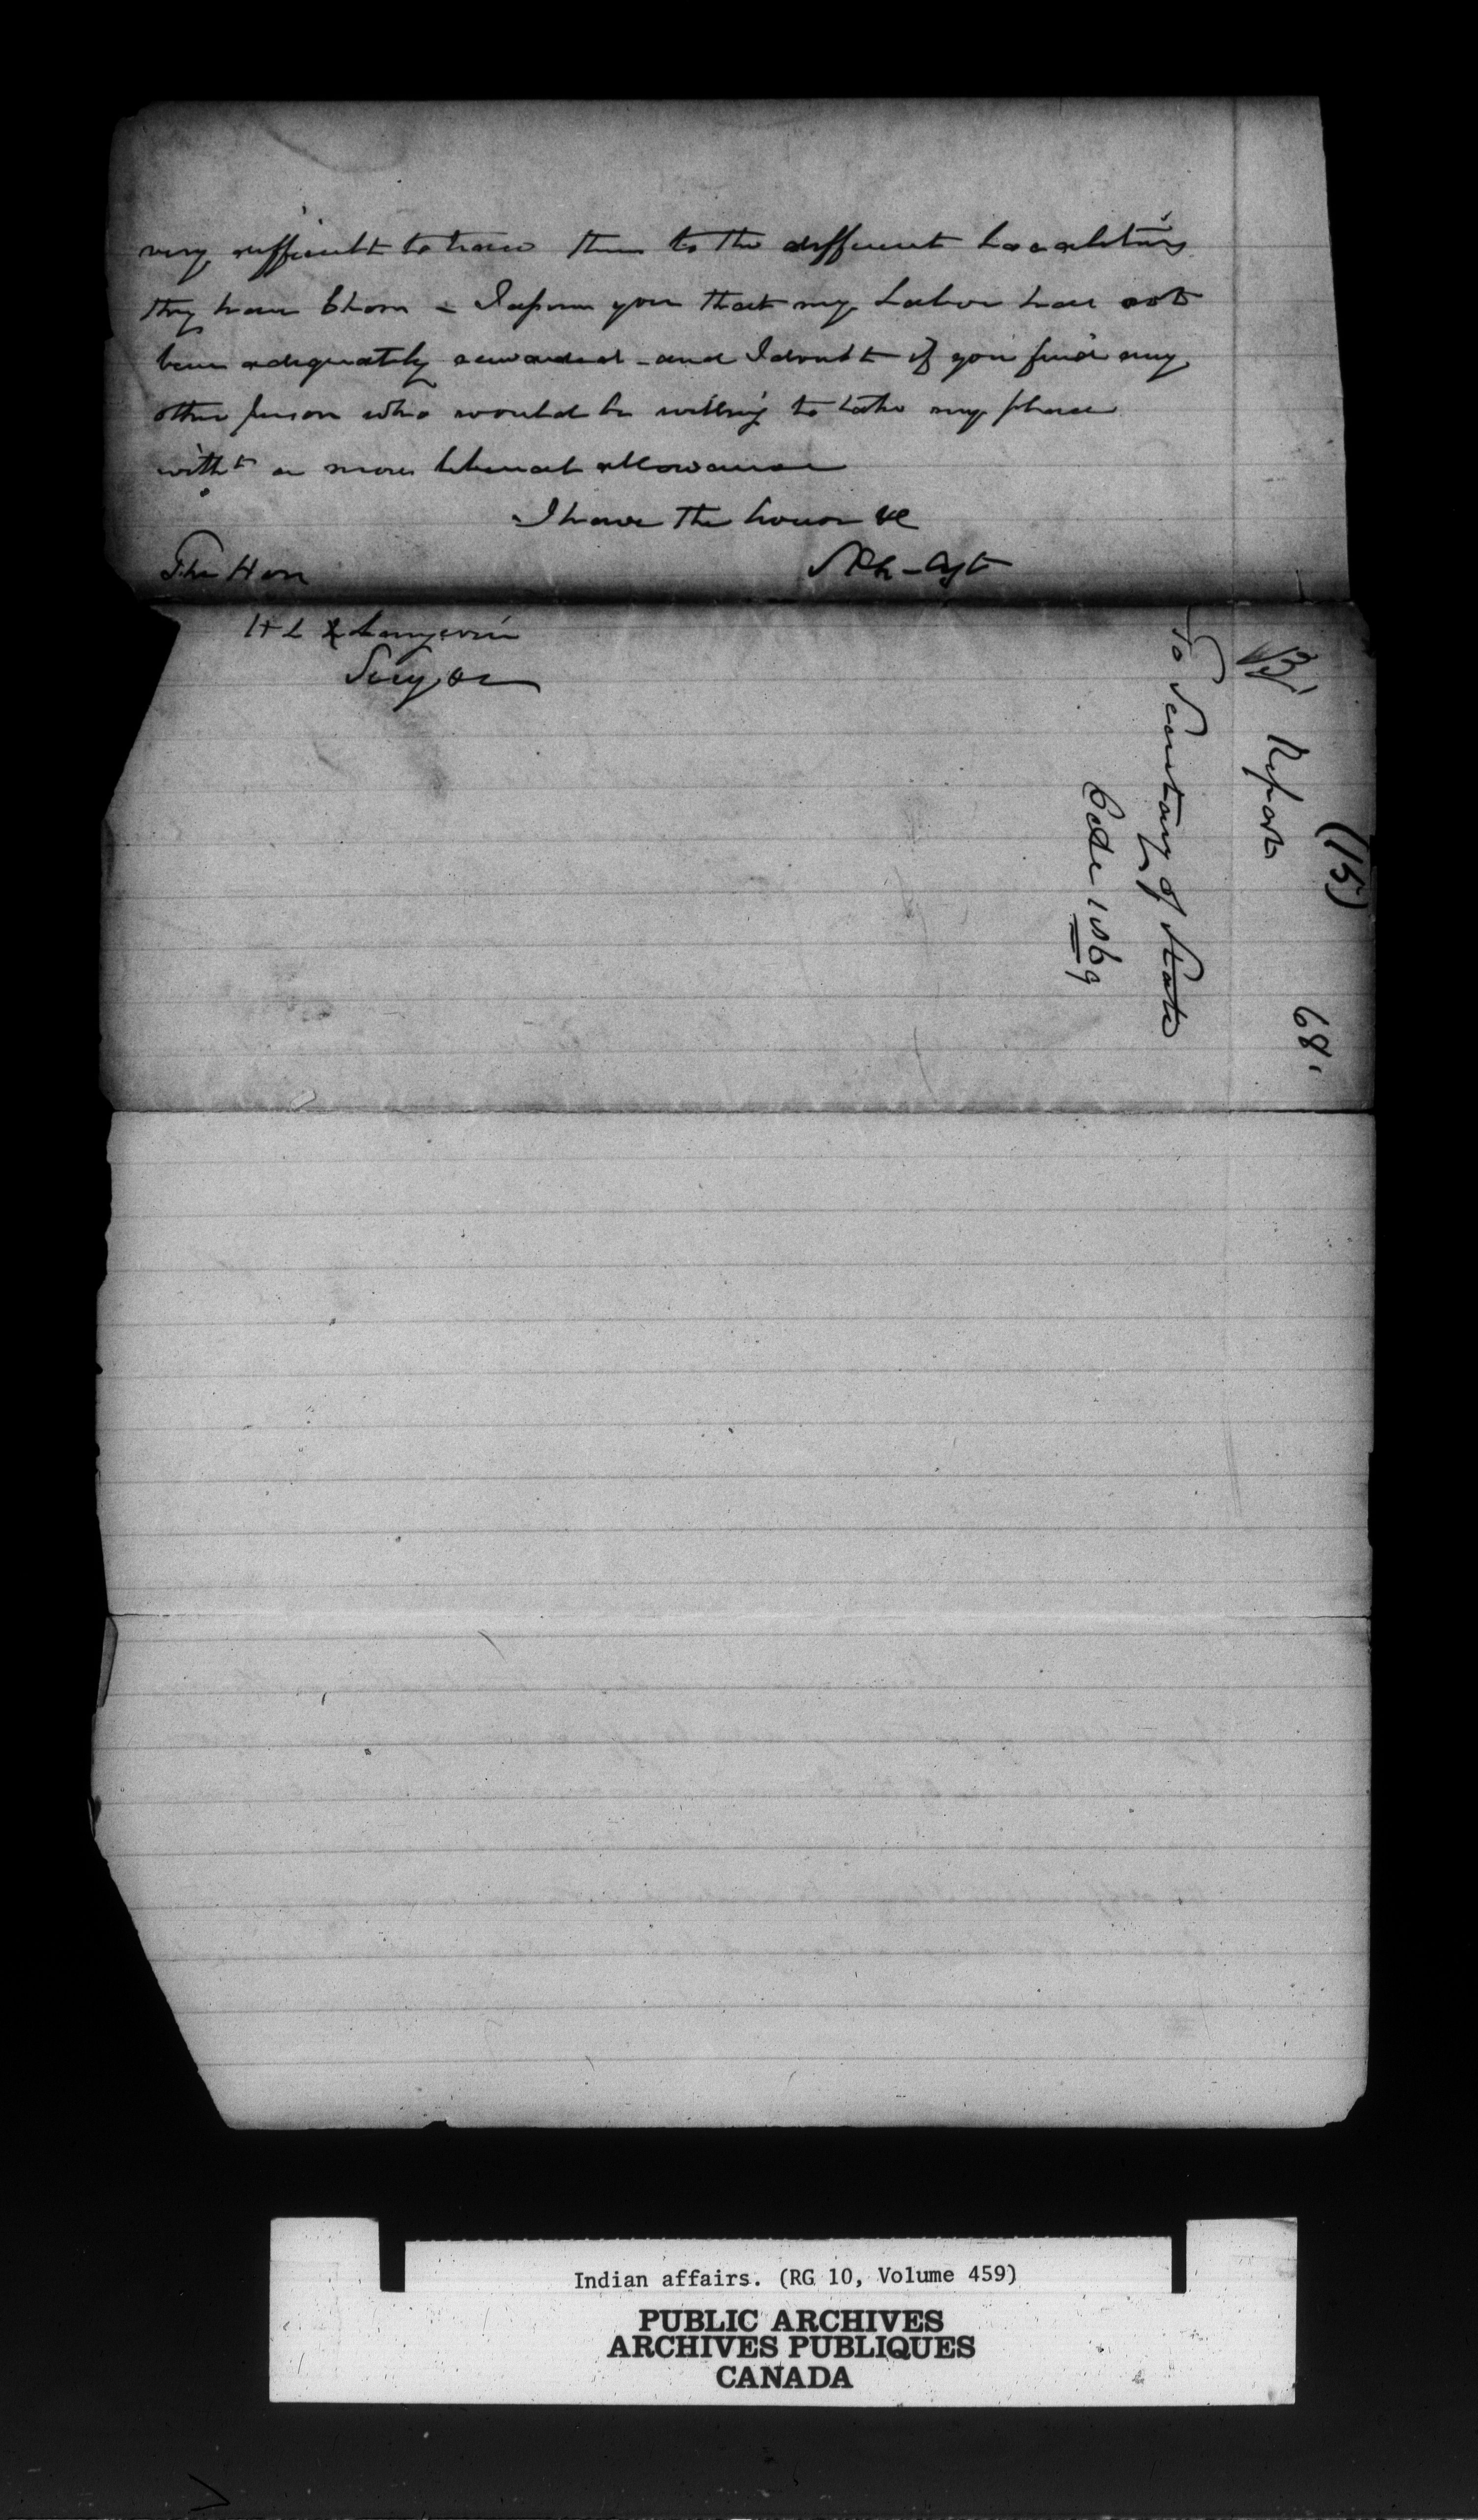 very difficult to trace them to the different Localities
they have Chosen - I assure you that my Labor has not
been adequately rewarded - and I doubt if you find any
other person who would be willing to take my place
witht a more liberal allowance
I have the honor &c
The Hon
H L Langevin
Secy &c
(15)
68
B Report
To Secretary of State
1869
Indian affairs. (RG 10, Volume 459)
PUBLIC ARCHIVES
ARCHIVES PUBLIQUES
CANADA